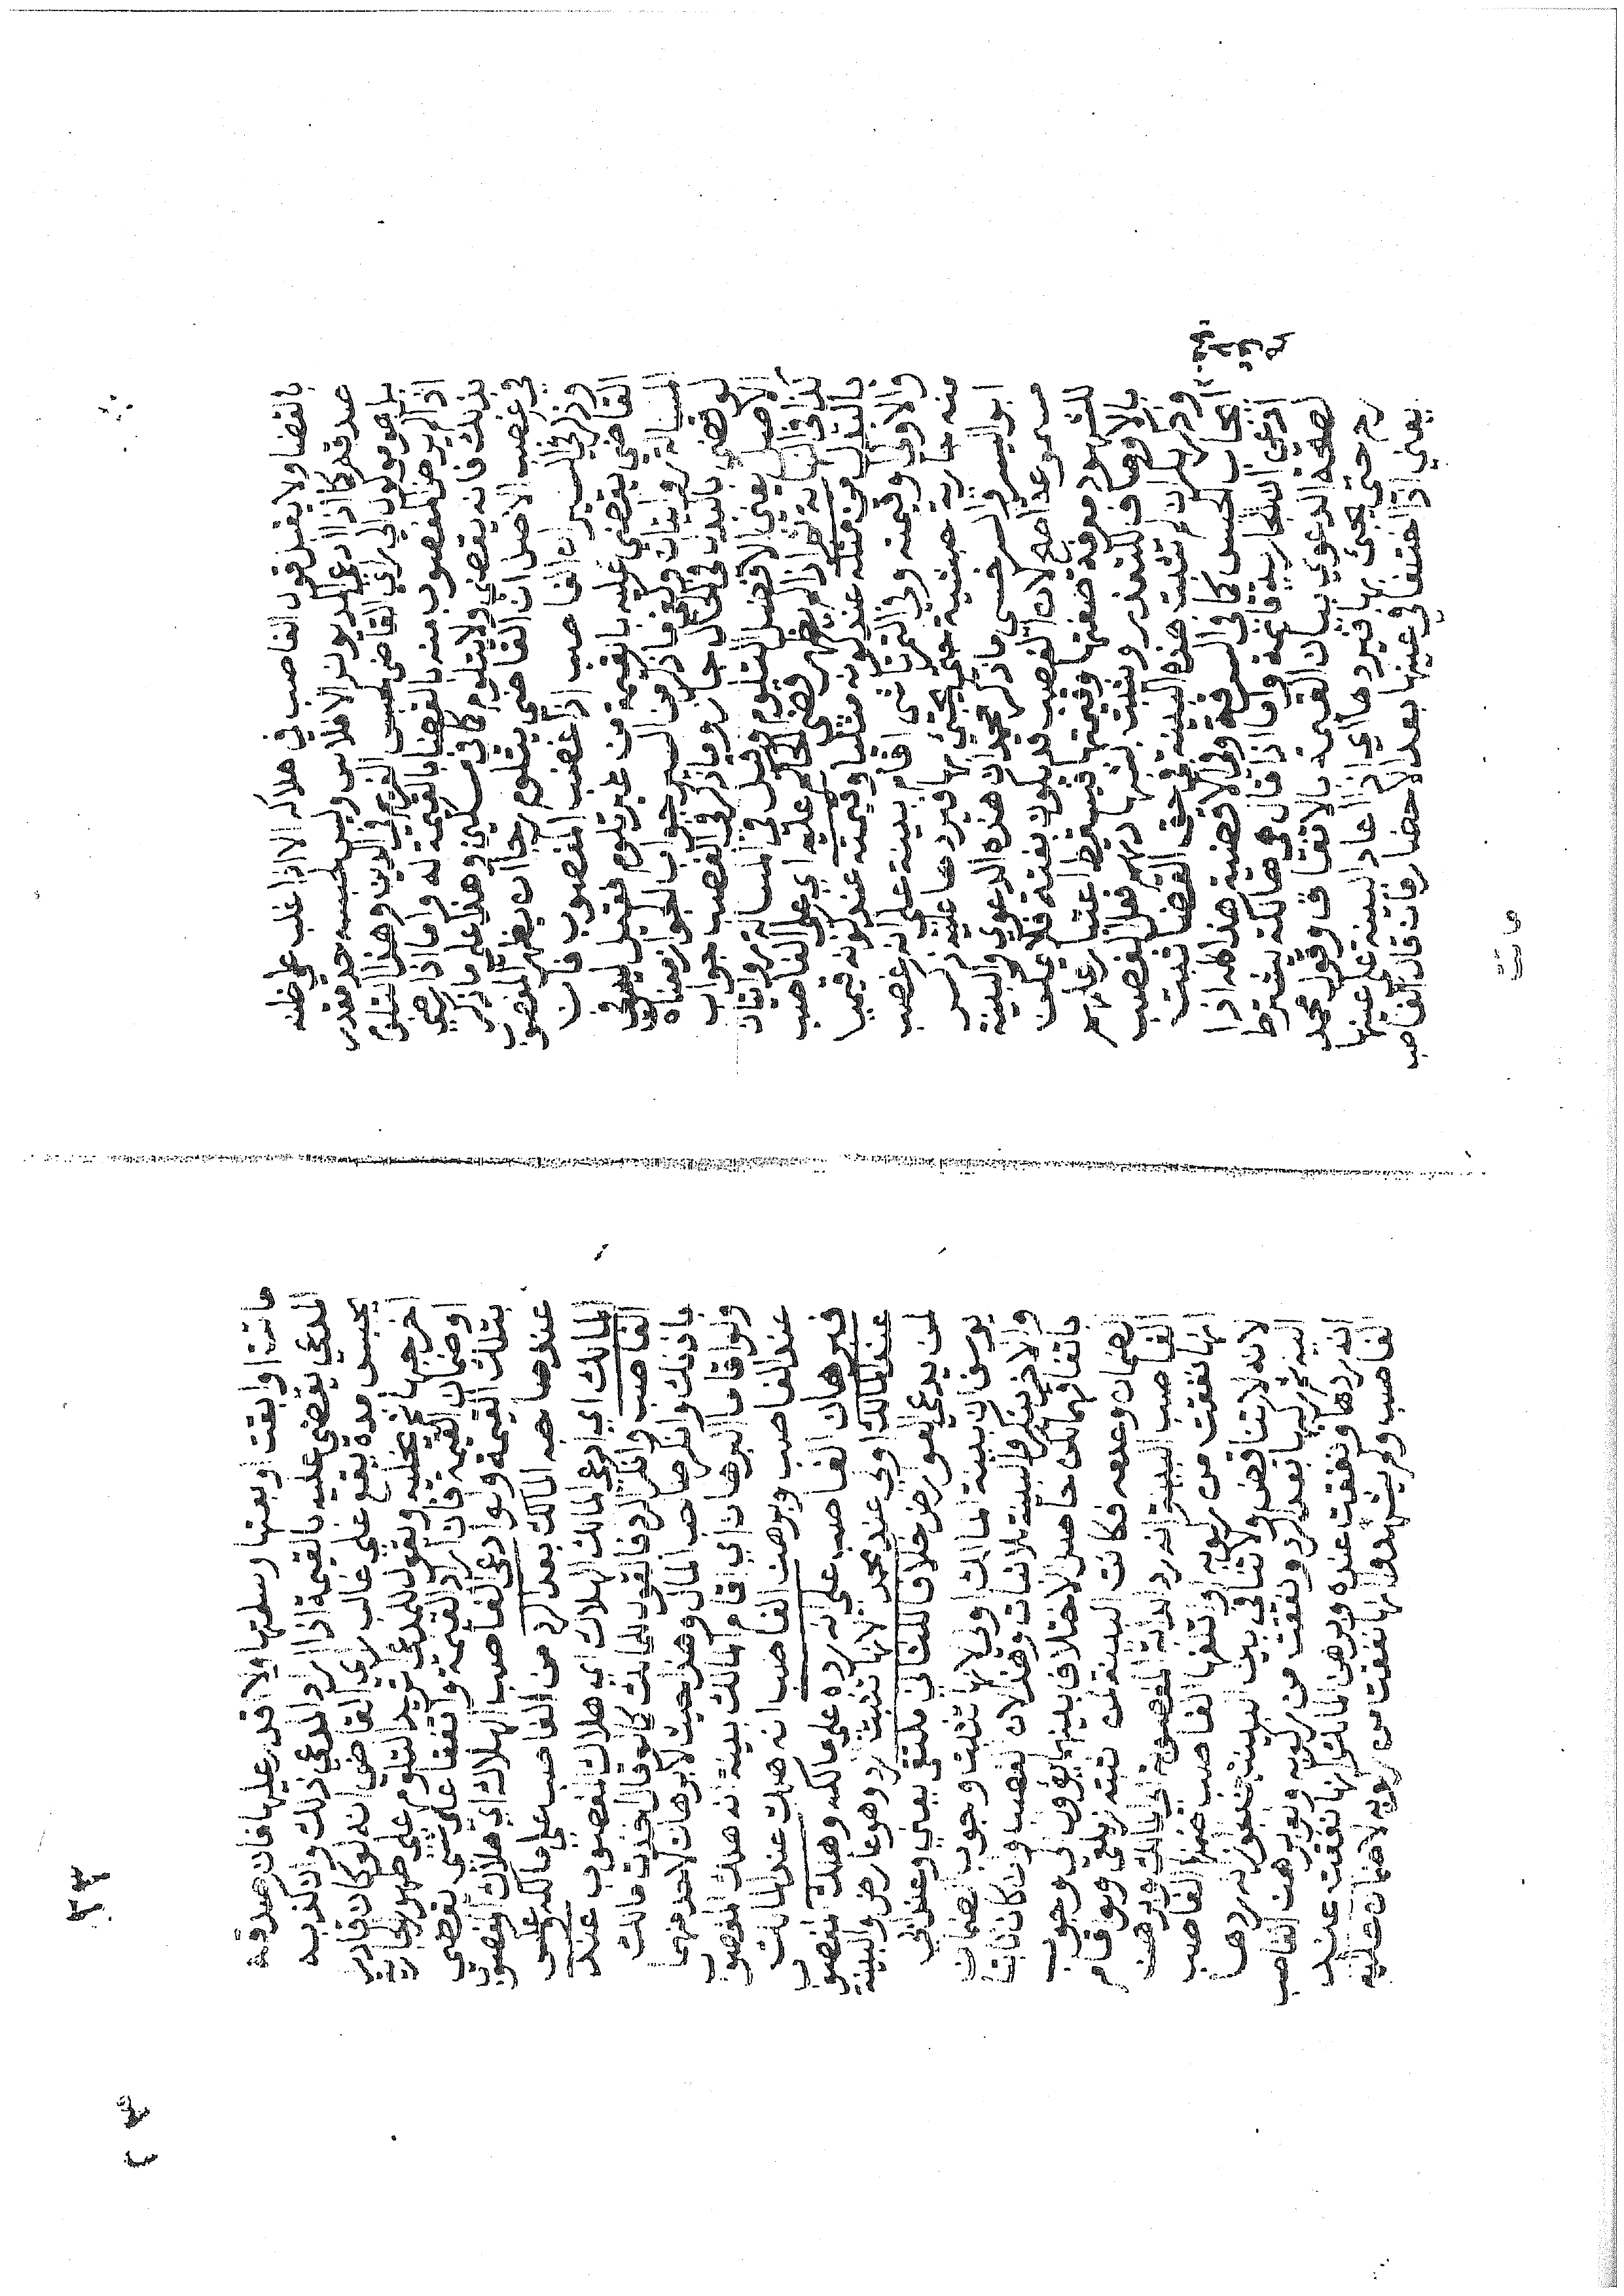 بالقضا ولا يقبل قول الغاصب في هلاكه الا اذا غلب على ظنه
صدقه كما اذا ادعى المديون الافلاس وليس لحبسه حد مقدر
بل هو موكول الى راي القاضي كحبس الغريم في الدين وهذا التلوم
اذا لم يرض المغصوب منه بالقضا بالقيمة له واما اذا رضي
بذلك فانه يقضي ولا يتلوم كما في مسكين وهذا على ما ذكر
في غصب الاصل ان القاضي يتلوم رجا ان يظهر المغصوب
وذكر في السير ان الغاصب اذا غصب المغصوب فان
القاضي يقضي عليه بالقيمة من غير تلوم فقيل
المسالة روايتان وقيل ما ذكر في السير جواب الجواز معناه
لو قضى بالبدل في الحال جاز وما ذكر في الغصب جواب
الافضل يعني الافضل التلوم وقيل في المسالة روايتان
كذا في النهاية ثم اذا لم يظهر وقضى الحاكم عليه اي على الغاصب
بالبدل من مثله عند كونه مثليا وقيمته عند كونه قيميا
والاوفى وقيمته وفي التمرتاشي اقام بينة على انه غصب
منه جارية حبشية حتى يجئ بها فيردها عليه ذكر
ابو اليسر والسرخسي ما ذكر محمد ان هذه الدعوى والبينة
مسموعة اصح لان الغصب قد يكون بغتة فلا يمكن
للشهود معرفة صفتها وقيمتها فيسقط اعتبار علمهم
بالاوصاف للتعذر ويثبت بشهادتهم فعل الغصب
وذكر بكر ان لم تثبت هذه البينة في حق القضا تثبت
في ايجاب الحبس كما في السرقة وفي الاقضية هذا كله اذا
ادعى ان الجارية قائمة واما اذا قال هي هالكة يشترط
لصحة الدعوى بيان القيمة بالاتفاق وقول محمد
رح حتى يجئ بها فيردها اي اذا اعاد البينة على عينها
يعني اذا اختلفا في عينها بعد الاحضار فان قال الغاصب
ماتت
ماتت او ابقت او بعتها وسلمتها ولا اقدر عليها فان صدقه
المدعي يقضي عليه بالقيمة اذا اراد المدعي ذلك وان كذبه
يحبس مدة يقع على غالب راي القاضي انه لو كان قادرا
اخرجها ثم يخليه ويقول للمدعي اتريد التلوم على ظهور الجارية
او ضمان القيمة فان اراد القيمة واتفقا على شئ يقضي
بتلك القيمة ولو ادعى الغاصب الهلاك اي هلاك المغصوب
عند صاحبه المالك بعد الرد من الغاصب على مالكه وعكس
المالك اي ادعى المالك الهلاك اي هلاك المغصوب عند
الغاصب وانكر الرد فالقول للمالك كما لو قال اخذت مالك
باذنك وانكر صاحب المال وهذا حيث لا برهان لاحدهما
ولو اقاما البرهان اي اقام المالك بينة انه هلك المغصوب
عند الغاصب وبرهن الغاصب انه هلك عند المالك
فبرهان الغاصب على انه رده على مالكه وهلك المغصوب
عند المالك اولى عند محمد لانها تثبت الرد وهو عارض والبينة
لمن يدعي العوارض خلافا للثاني ملتقى يعني وعند ابي
يوسف ان بينة المالك اولى لانها تثبت وجوب الضمان
والاخر ينكره والبينة للاثبات وهذا لان الغصب وان كان ثابتا
باتفاقهما لكن حاصل الاختلاف بينهما يؤول الى وجوب
الضمان وعدمه فكانت البينة لمن تثبته زيلعي ولو اقام
الغاصب البينة انه رد الدابة المغصوبة الى المالك وبرهن
انها نفقت من ركوبه او تلفها الغاصب ضمن الغاصب
لانه لا تناقض ولا تنافي بين البينتين لجواز انه ردها
اليه ثم ركبها بعد الرد ونفقت من ركوبه ولو برهن الغاصب
انه ردها ونفقت عنده وبرهن المالك انها نفقت عند
الغاصب ولم يشهدوا انها نفقت من ركوبه لا ضمان عليه